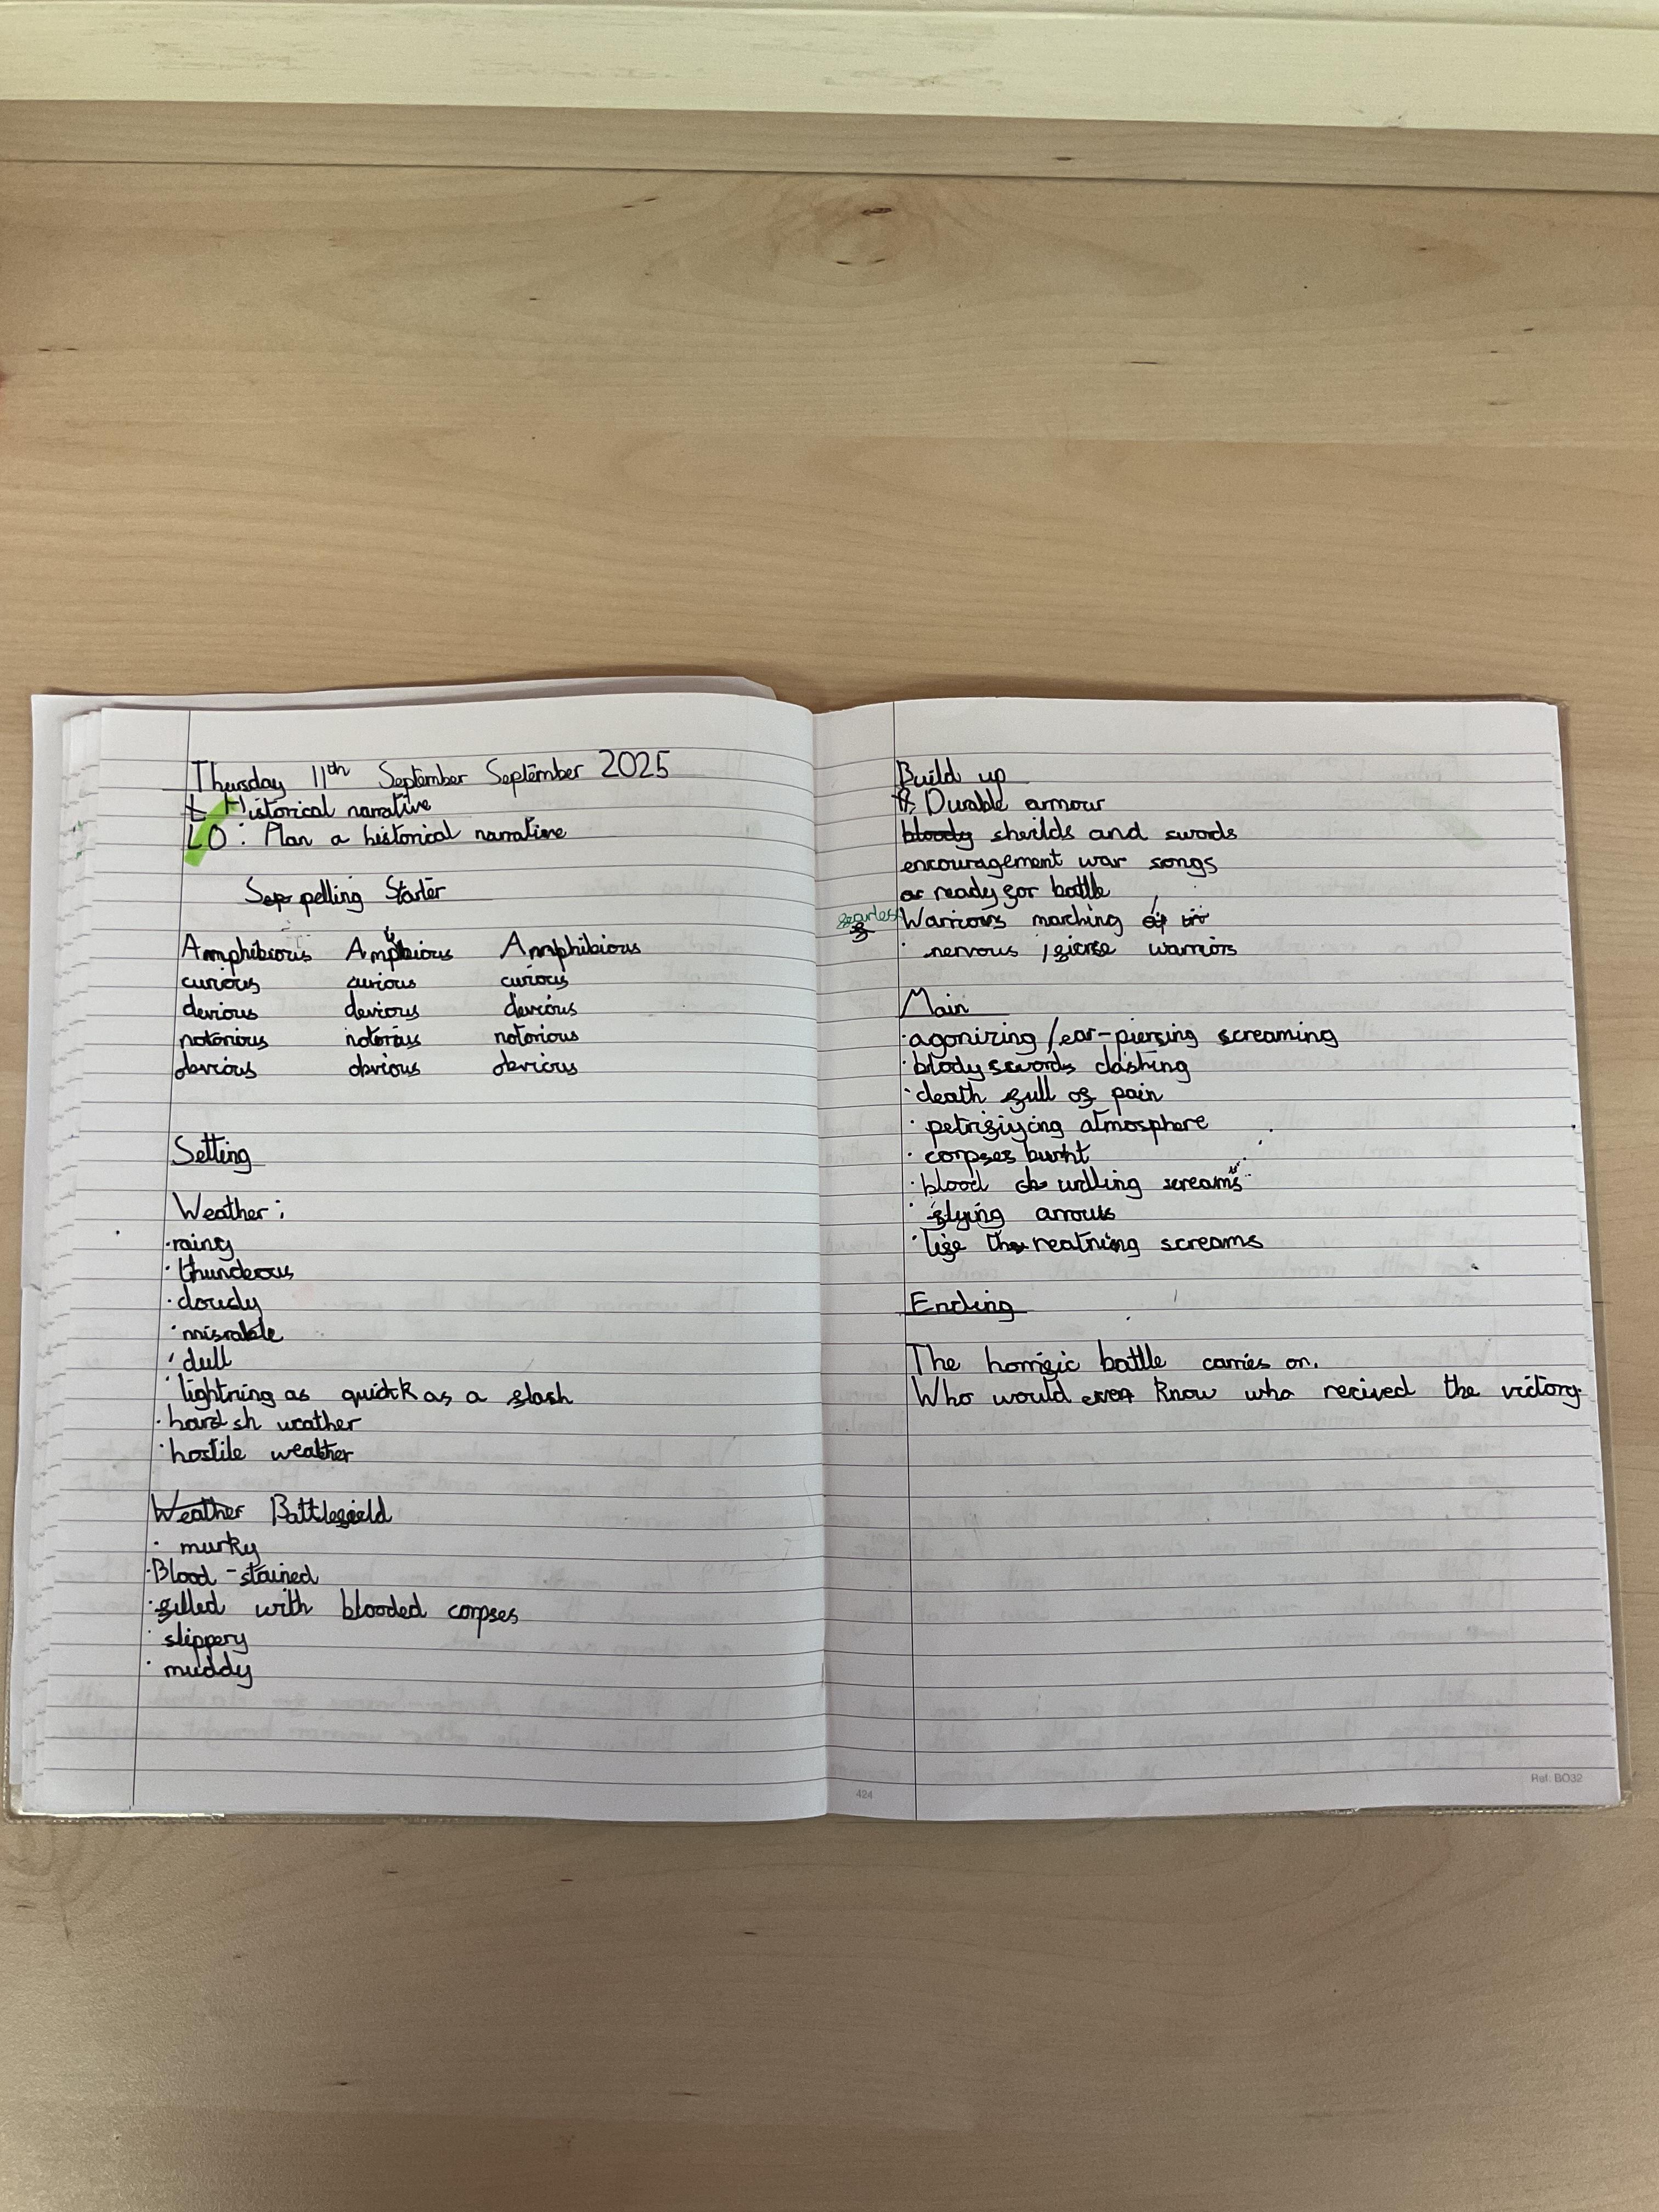 Thursday 11th September September 2025
L Historical narrative
LO: Plan a historical narrative
Sep pelling Starter
Amphibious Amphibious Amphibious
curious curious curious
devious devious devious
notorious notorious notorious
obvious obvious obvious
Setting
Weather:
·rainy
·thunderous
·cloudy
·misrable
·dull
·lightning as quick as a flash
·hardsh weather
·hostile weather
Weather Battlefield
· murky
·Blood-stained
·filled with blooded corpses
· slippery
· muddy
424
Build up
Durable armour
bloody sheilds and swords
encouragement war songs
or ready for battle
fearless Warriors marching
· nervous / fierce warriors
Main
·agonizing /ear-piersing screaming
·blody swords clashing
·death full of pain
· petrifiying atmosphere
· corpses burnt
·blood urdling screams
· flying arrows
· life threatning screams
Ending
The horrific battle carries on.
Who would ever know who recived the victory.
Ref: BO32